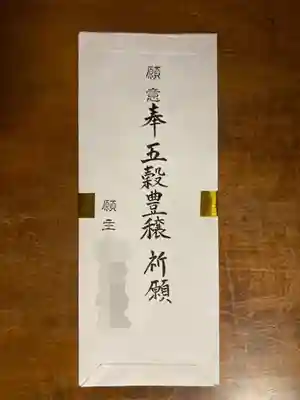 願意 奉五穀豊穣祈願
願主